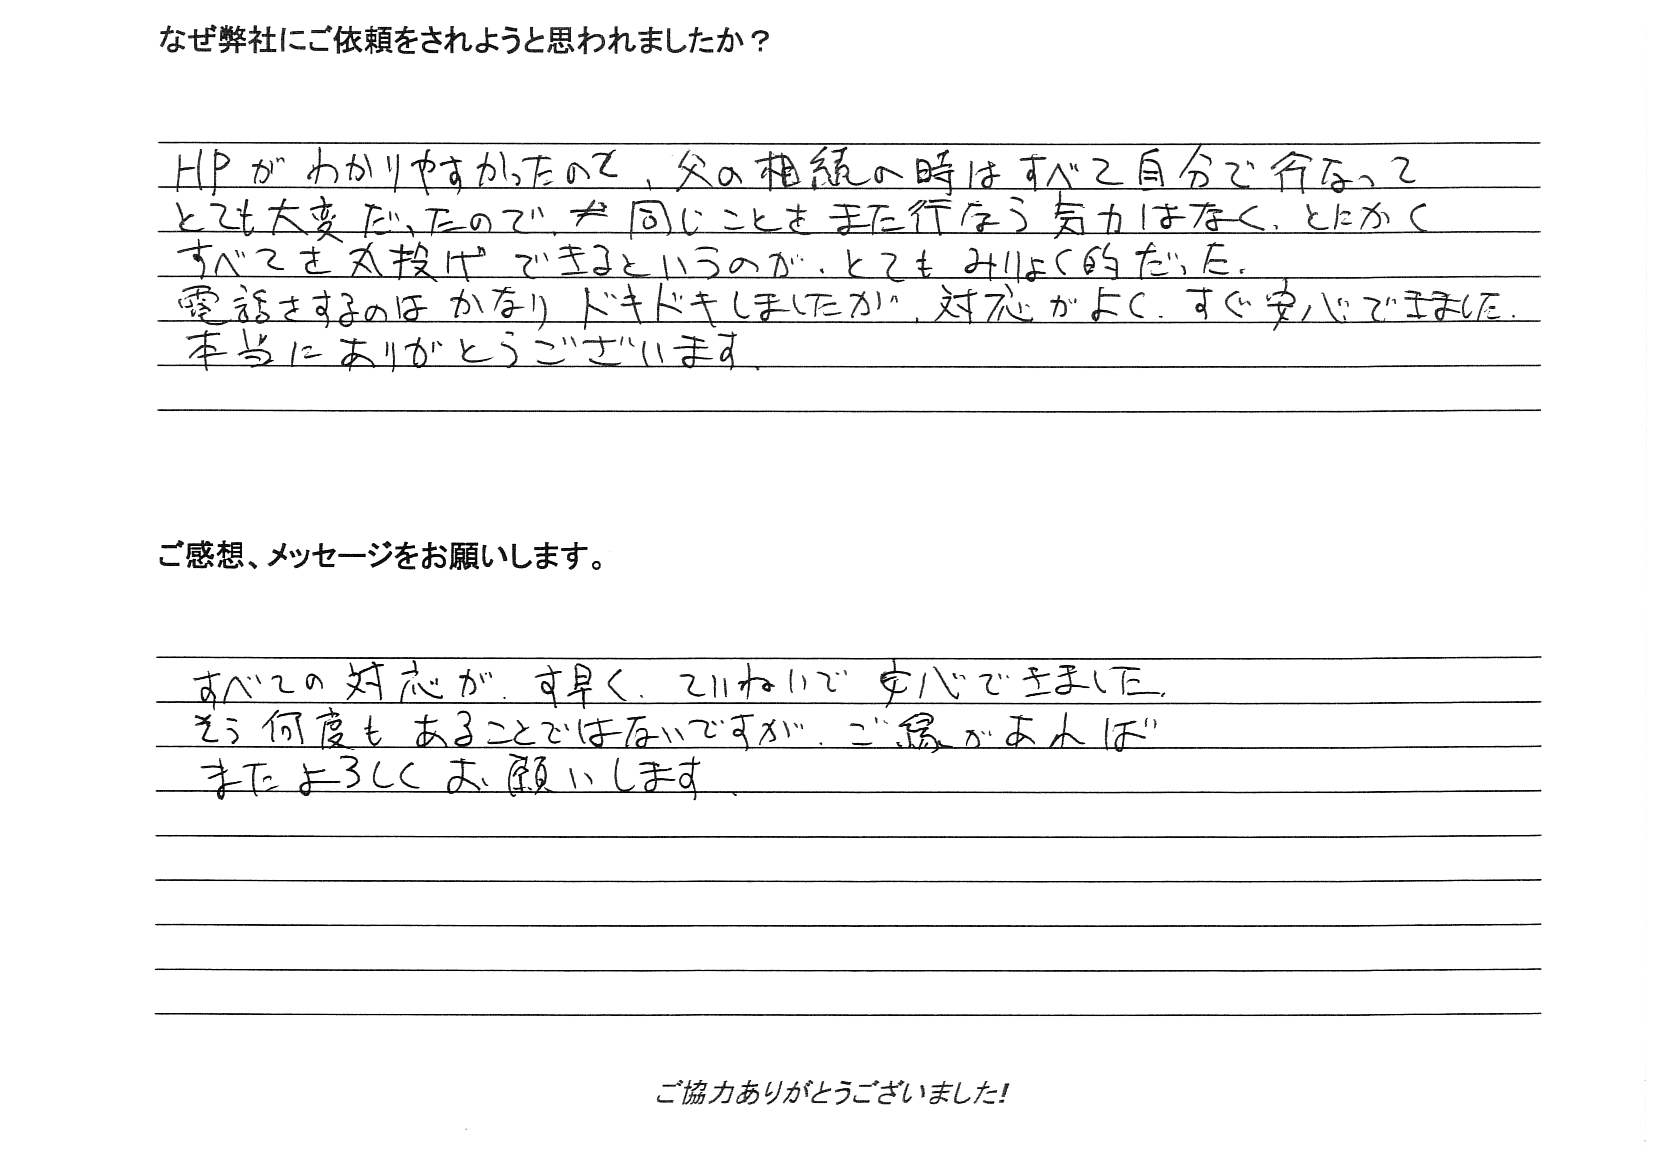 なぜ弊社にご依頼をされようと思われましたか？
HPがわかりやすかったのと、父の相続の時はすべて自分で行なって
とても大変だったので、同じことをまた行なう気力はなく、とにかく
すべてを丸投げできるというのが、とてもみりょく的だった。
電話をするのはかなりドキドキしましたが、対応がよく、すぐ安心できました。
本当にありがとうございます。
ご感想、メッセージをお願いします。
すべての対応が、す早く、ていねいで安心できました。
そう何度もあることではないですが、ご縁があれば
またよろしくお願いします。
ご協力ありがとうございました!